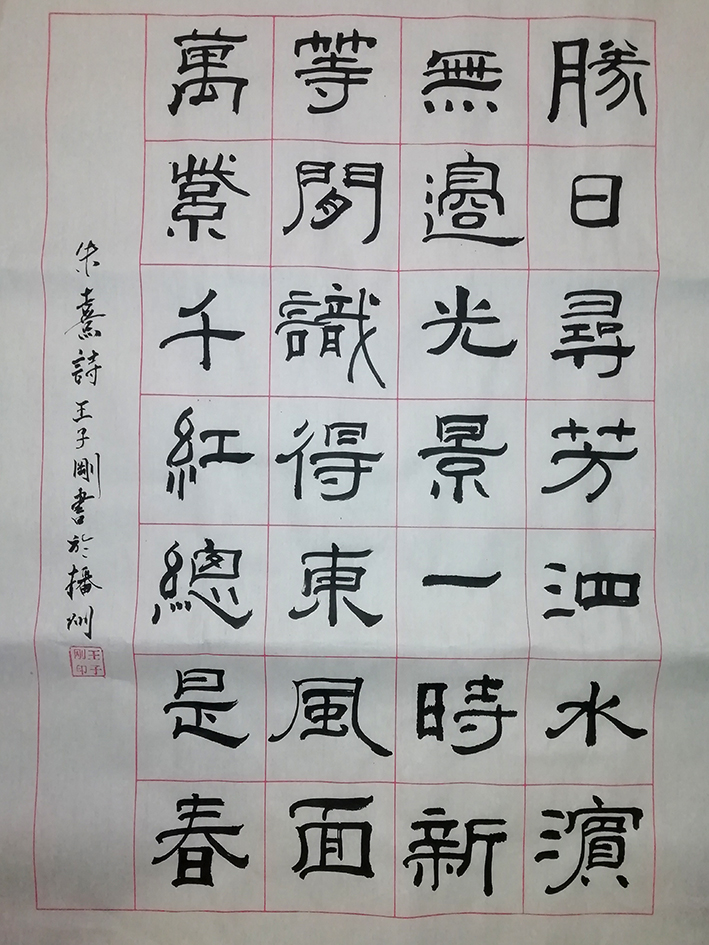 勝日尋芳泗水濵
無邉光景一時新
等閒識得東風面
萬紫千紅總是春
朱熹詩王子剛書於播州
王子剛印